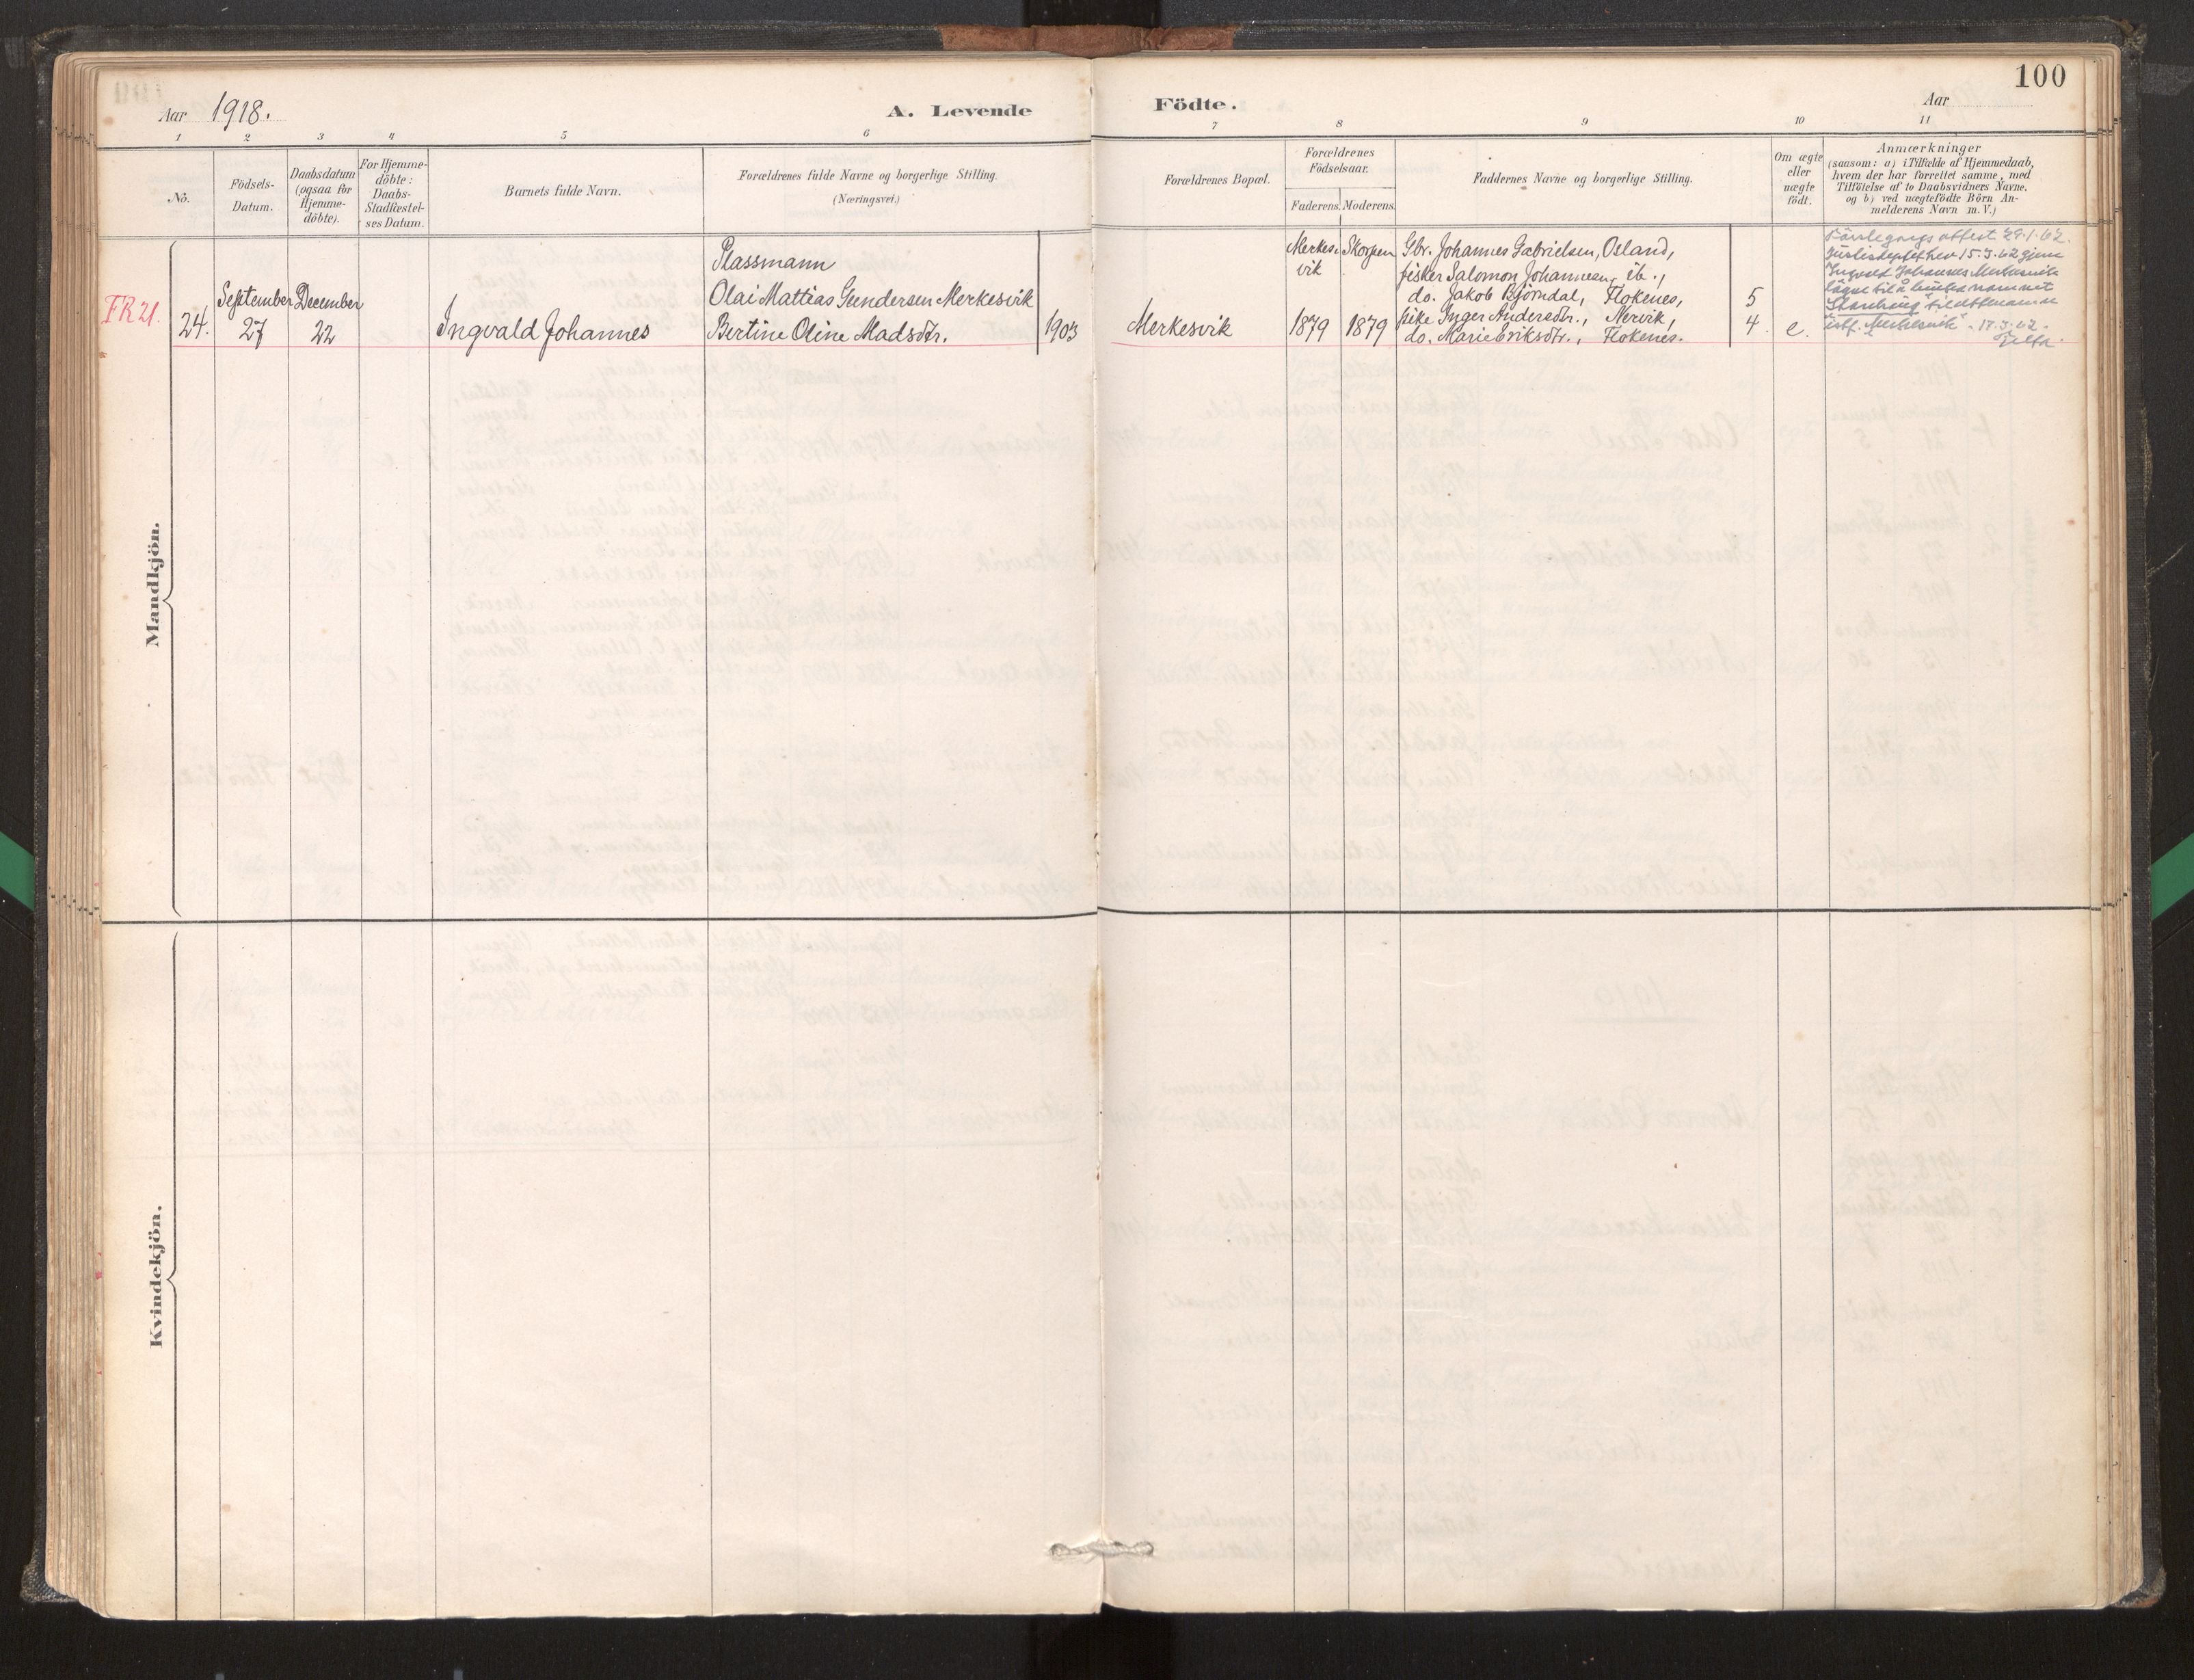 100
Aar 1918.
A. Levende Födte.
Aar
1 2 3 4 5 6 7 8 9 10 11
No.
Födsels-
Datum.
Daabsdatum
(ogsaa for
Hjemme-
döbte).
For Hjemme-
döbte:
Daabs-
Stadfæstel-
ses Datum.
Barnets fulde Navn.
Forældrenes fulde Navne og borgerlige Stilling.
(Næringsvei.)
Forældrenes Bopæl.
Forældrenes
Födselsaar.
Faderens. Moderens.
Faddernes Navne og borgerlige Stilling.
Om ægte
eller
uægte
födt.
Anmærkninger
(saasom: a) i Tilfælde af Hjemmedaab,
hvem der har forrettet samme, med
Tilföielse af to Daabsvidners Navne,
og b) ved uægtefödte Börn An-
melderens Navn m. V.)
Mandkjön.
FR21.
24.
September
27
December
22
Ingvald Johannes
Plassmann
Olai Mattias Gundersen Merkesvik
Bertine Oline Madsdtr.
1903
Merkesvik
Merkes-
vik
1879
Skorpen
1879
Gbr. Johannes Gabrielsen, Osland,
fisker Salomon Johannesen, ib.,
do. Jakob Björndal, Flokenes,
pike Inger Andersdtr., Nervik,
do. Marie Eriksdtr., Flokenes.
5
4.
e.
attest 29.1.62.
15.3.62
Ingvald Johannes Merkesvik
löyve til å namnet
til etternamn
istf. "Merkesvik". 17.3.62.
Kvindekjön.